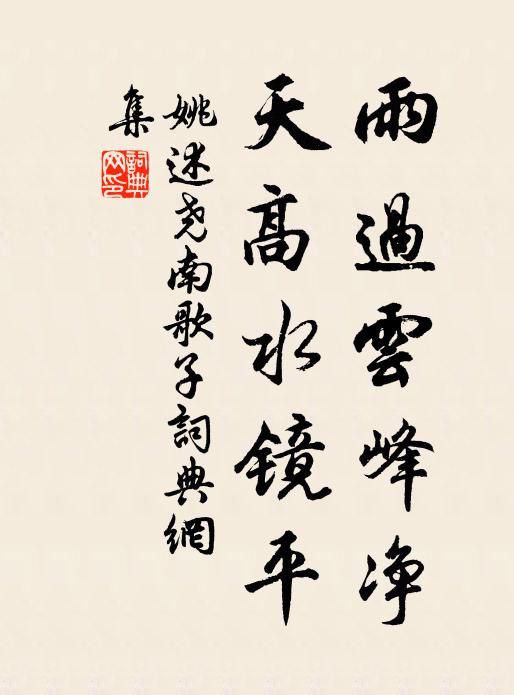 雨過雲峰净
天高水鏡平
姚述尧南歌子詞典網
集
詞典網印